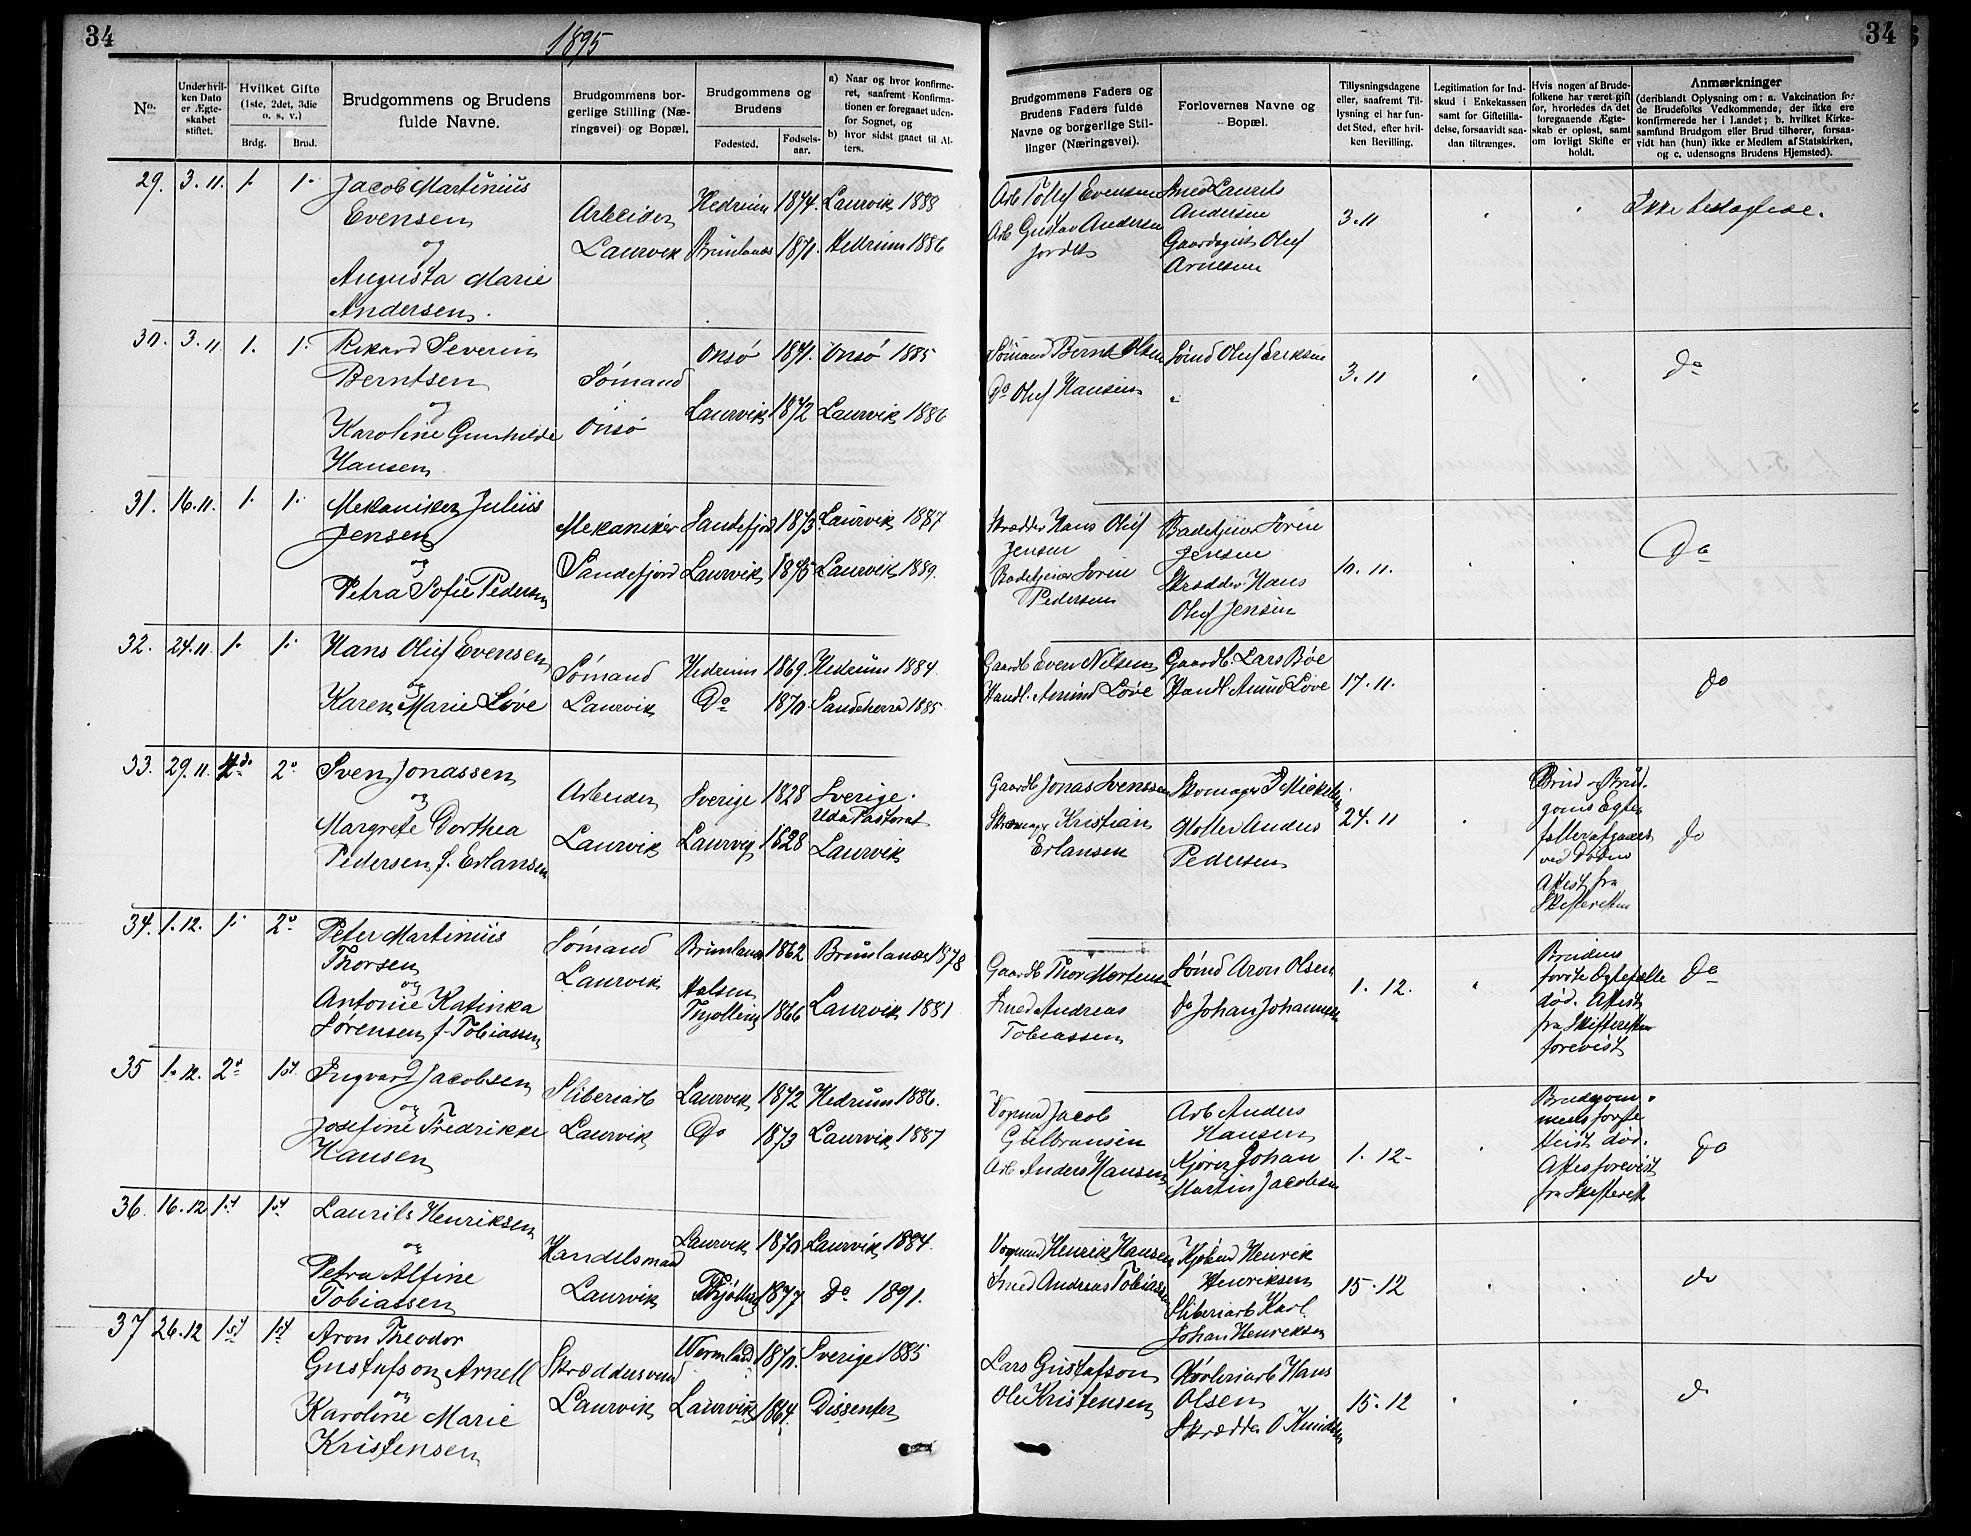 34
1895
34
No.
Under hvilken Dato er Ægteskabet stiftet.
Hvilket Gifte (1ste, 2det, 3die o. s. v.)
Brdg.
Brud.
Brudgommens og Brudens fulde Navne.
Brudgommens borgerlige Stilling (Næringsvei) og Bopæl.
Brudgommens og Brudens
Fødested.
Fødselsaar.
a) Naar og hvor konfirmeret, saafremt Konfirmationen er foregaaet udenfor Sognet, og
b) hvor sidst gaaet til Alters.
Brudgommens Faders og Brudens Faders fulde Navne og borgerlige Stillinger (Næringsvei).
Forlovernes Navne og Bopæl.
Tillysningsdagene eller, saafremt Tillysning ei har fundet Sted, efter hvilken Bevilling.
Legitimation for Indskud i Enkekassen samt for Giftetilladelse, forsaavidt saadan tiltrænges.
Hvis nogen af Brudefolkene har været gift før, hvorledes da det foregaaende Ægteskab er opløst, samt om lovligt Skifte er holdt.
Anmærkninger
(deriblandt Oplysning om: a. Vakcination for de Brudefolks Vedkommende, der ikke ere konfirmerede her i Landet; b. hvilket Kirkesamfund Brudgom eller Brud tilhører, forsaavidt han (hun) ikke er Medlem af Statskirken, og c. udensogns Brudens Hjemsted).
29. 3.11. 1. 1.
Jacob Martinius
Evensen
og
Augusta Marie
Andersen.
Arbeider
Laurvik
Hedrum 1874. Laurvik 1889
Brunlanes 1871. Hedrum 1886
Arb Tollef Evensen
Arb Gustav Andersen
Jordet
Smed Laurits
Andersen
Gaardsgut Oluf
Arnesen
3.11
Ikke beslægtede.
30. 3.11 1. 1.
Rikard Severin
Berntsen
og
Karoline Gunhilde
Hansen
Sømand
Onsø
Onsø 1871. Onsø 1885
Laurvik 1872 Laurvik 1886
Sømand Bernt Olsen
Do Oluf Hansen
Sømd Oluf Eriksen
3.11
Do
31. 16.11. 1. 1.
Mekaniker Julius
Jensen
og
Petra Sofie Pedersen
Mekaniker
Sandefjord
Sandefjord 1873 Laurvik 1887
Laurvik 1875 Laurvik 1889.
Skrædder Hans Oluf
Jensen
Badetjener Søren
Pedersen
Badetjener Søren
Jensen
Skrædder Hans
Oluf Jensen
10.11.
Do
32. 24.11 1. 1.
Hans Oluf Evensen
og
Karen Marie Løve
Sømand
Laurvik
Hedrum 1869. Hedrum 1884
Do 1870. Sandeherred 1885
Gaardb Even Nilsen
Handl. Amund Løve
Gaardb. Lars Bøe
Handl Amund Løve
17.11.
do
33. 29.11. 2 2o
Sven Jonassen
og
Margrete Dorthea
Pedersen f. Erlansen
Arbeider
Laurvik
Sverige 1828 Sverige.
Uda Pastorat
Laurvig 1828 Laurvik
Gaardb Jonas Svensson
Skomager Kristian
Erlansen
Anders
Pedersen
24.11
Brud og Brudgoms Egtefæller afgaaet
ved Døden
Attest fra
Skifteretten
do
34. 1.12. 1. 2o
Peter Martinius
Thorsen
og
Antonie Katinka
Sørensen f. Tobiassen
Sømand
Laurvik
Brunlanes 1862 Brunlanes 1878
Halsen
Thjølling 1866 Laurvik 1881
Gaardb Thor Mortensen
Smed Andreas
Tobiassen
Sømd Aron Olsen
do Johan Johannesen
1.12.
Brudens
første Egtefælle
død. Attest
fra Skifteretten
forevist
do
35 1.12. 2d 1st.
Ingvard Jacobsen
og
Josefine Fredrikke
Hansen
Sliberiarb
Laurvik
Laurvik 1872 Hedrum 1886.
Do 1873 Laurvik 1887
Vognmd Jacob
Gulbransen
Arb Anders Hansen
Arb Anders
Hansen
Kjører Johan
Martin Jacobsen
1.12.
Brudgommens første
død.
Attest forevist
fra Skifteret
do
36. 16.12 1st 1st
Laurits Henriksen
og
Petra Alfine
Tobiassen
Handelsmand
Laurvik
Laurvik 1870 Laurvik 1884.
Thjølling 1877 Do 1891.
Vognmd Henrik Hansen
Smed Andreas Tobiassen
Kjøbmd Henrik
Henriksen
Sliberiarb Karl
Johan Henriksen
15.12
do
37 26.12 1st 1st
Aron Theodor
Gustafson Arnell
og
Karoline Marie
Kristensen
Skræddersvend
Laurvik
Wermland 1870. Sverige 1885
Laurvik 1864. Dissenter
Lars Gustafson
Ole Kristensen
Hans
Olsen
Skrædder O Knudsen
15.12
do